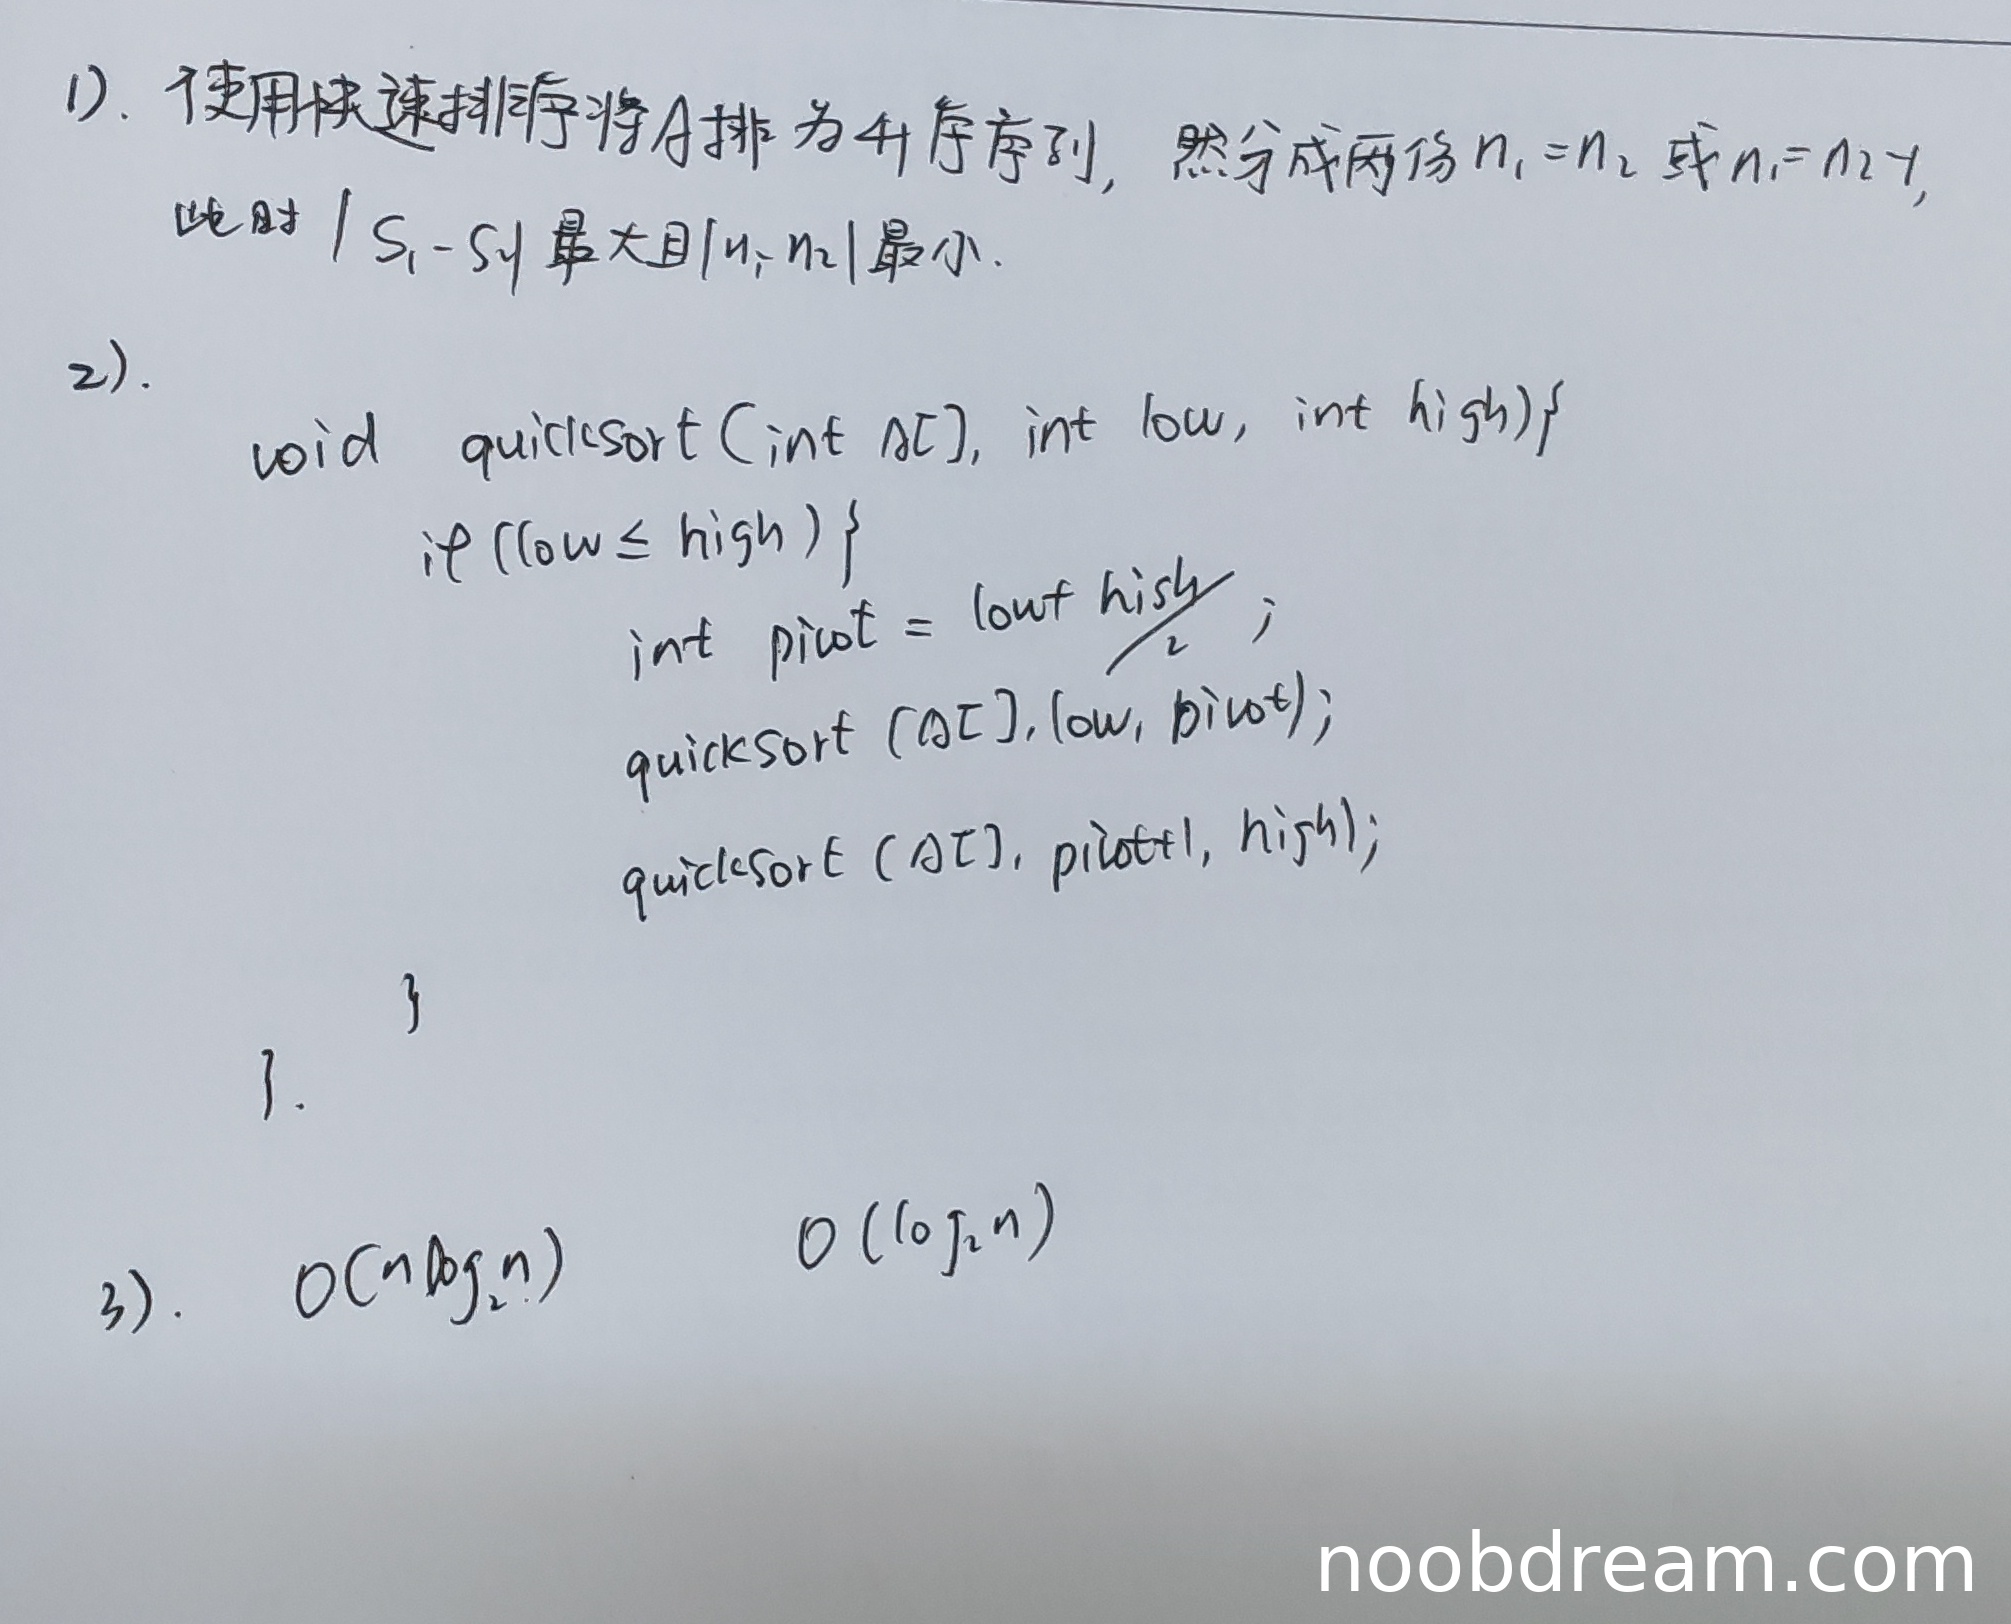 1). 使用快速排序将A排为升序序列, 然分成两份 n₁=n₂ 或 n₁=n₂-1,
此时 |S₁-S₂| 最大且|n₁-n₂|最小.
2).
void quicksort(int A[], int low, int high){
if(low ≤ high){
int pivot = low+high/2;
quicksort(A[], low, pivot);
quicksort(A[], pivot+1, high);
}
}.
3). O(nlog₂n) O(log₂n)
noobdream.com